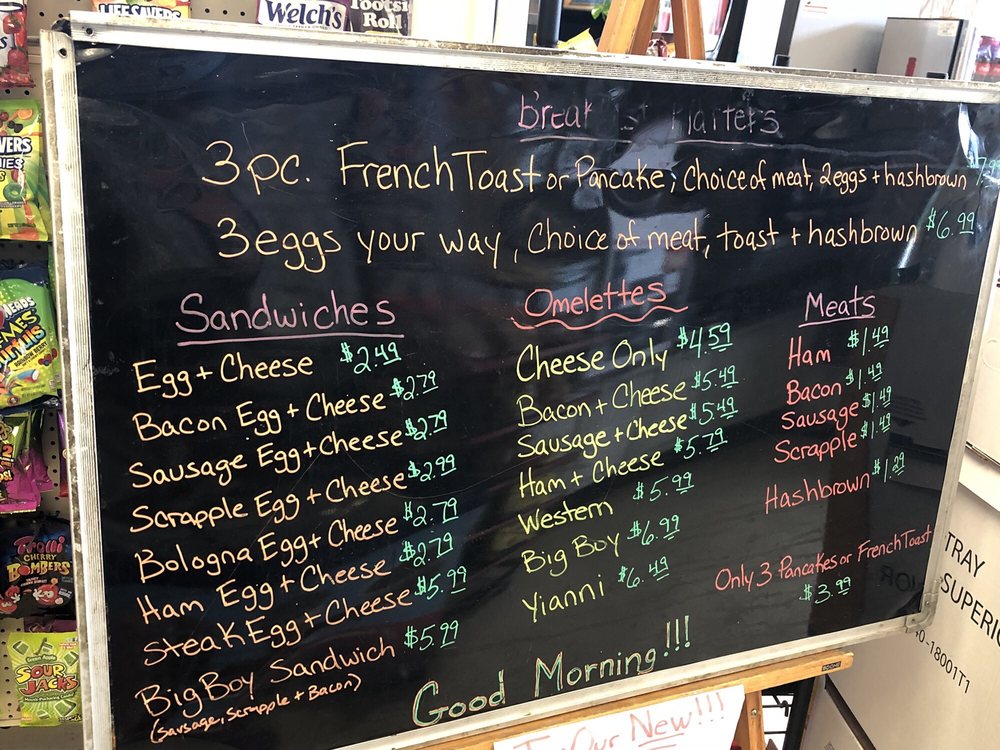 LIFESAVERS
Welch's
Tootsie
Roll
Platters
3pc. French Toast or Pancake, Choice of meat, 2eggs + hashbrown
3 eggs your way, Choice of meat, toast + hashbrown $6.99
Sandwiches
Egg + Cheese $2.49
Bacon Egg + Cheese $2.79
Sausage Egg + Cheese $2.79
Scrapple Egg + Cheese $2.99
Bologna Egg + Cheese $2.79
Ham Egg + Cheese $2.79
Steak Egg + Cheese $5.99
Big Boy Sandwich $5.99
(Sausage, Scrapple + Bacon)
Omelettes
Cheese Only $4.59
Bacon + Cheese $5.49
Sausage + Cheese $5.49
Ham + Cheese $5.79
Western $5.99
Big Boy $6.99
Yianni $6.49
Meats
Ham $1.49
Bacon $1.49
Sausage $1.49
Scrapple $1.49
Hashbrown $1.29
Only 3 Pancakes or French Toast
$3.99
Good Morning!!!
Our New!!!
TRAY
SUPERI
-18001T1
Trolli
CHERRY
BOMBERS
SOUR
JACKS